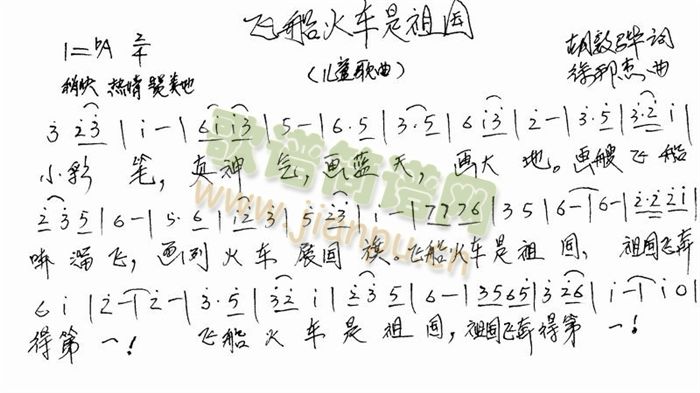 飞船火车是祖国
1=bA 2/4
(儿童歌曲)
胡敦骅 词
徐邦杰 曲
稍快 热情 赞美地
3 2 3 | i - | 6 i i 3 | 5 - | 6. 5 | 3. 5 | 6 i 3 | 2 - | 3. 5 | 3. 2 i |
小彩 笔, 真神 气, 画蓝 天, 画大 地。画艘 飞船
2 3 5 | 6 - | 5. 6 | i 2 3 | 5 2 3 | i - | 7 7 7 6 | 3 5 | 6 - | 6 - | 2. 2 2 i |
嗖溜飞, 画列 火车 展国 旗。飞船火车是祖 国, 祖国飞奔
6 i | 2 - | 2 - | 3. 5 | 3 2 i | 2 3 5 | 6 - | 3 5 6 5 | 3 2 6 | i - | i 0 |
得第 一! 飞船 火车 是祖 国, 祖国飞奔得第 一!
歌谱简谱网
www.jianpu.cn